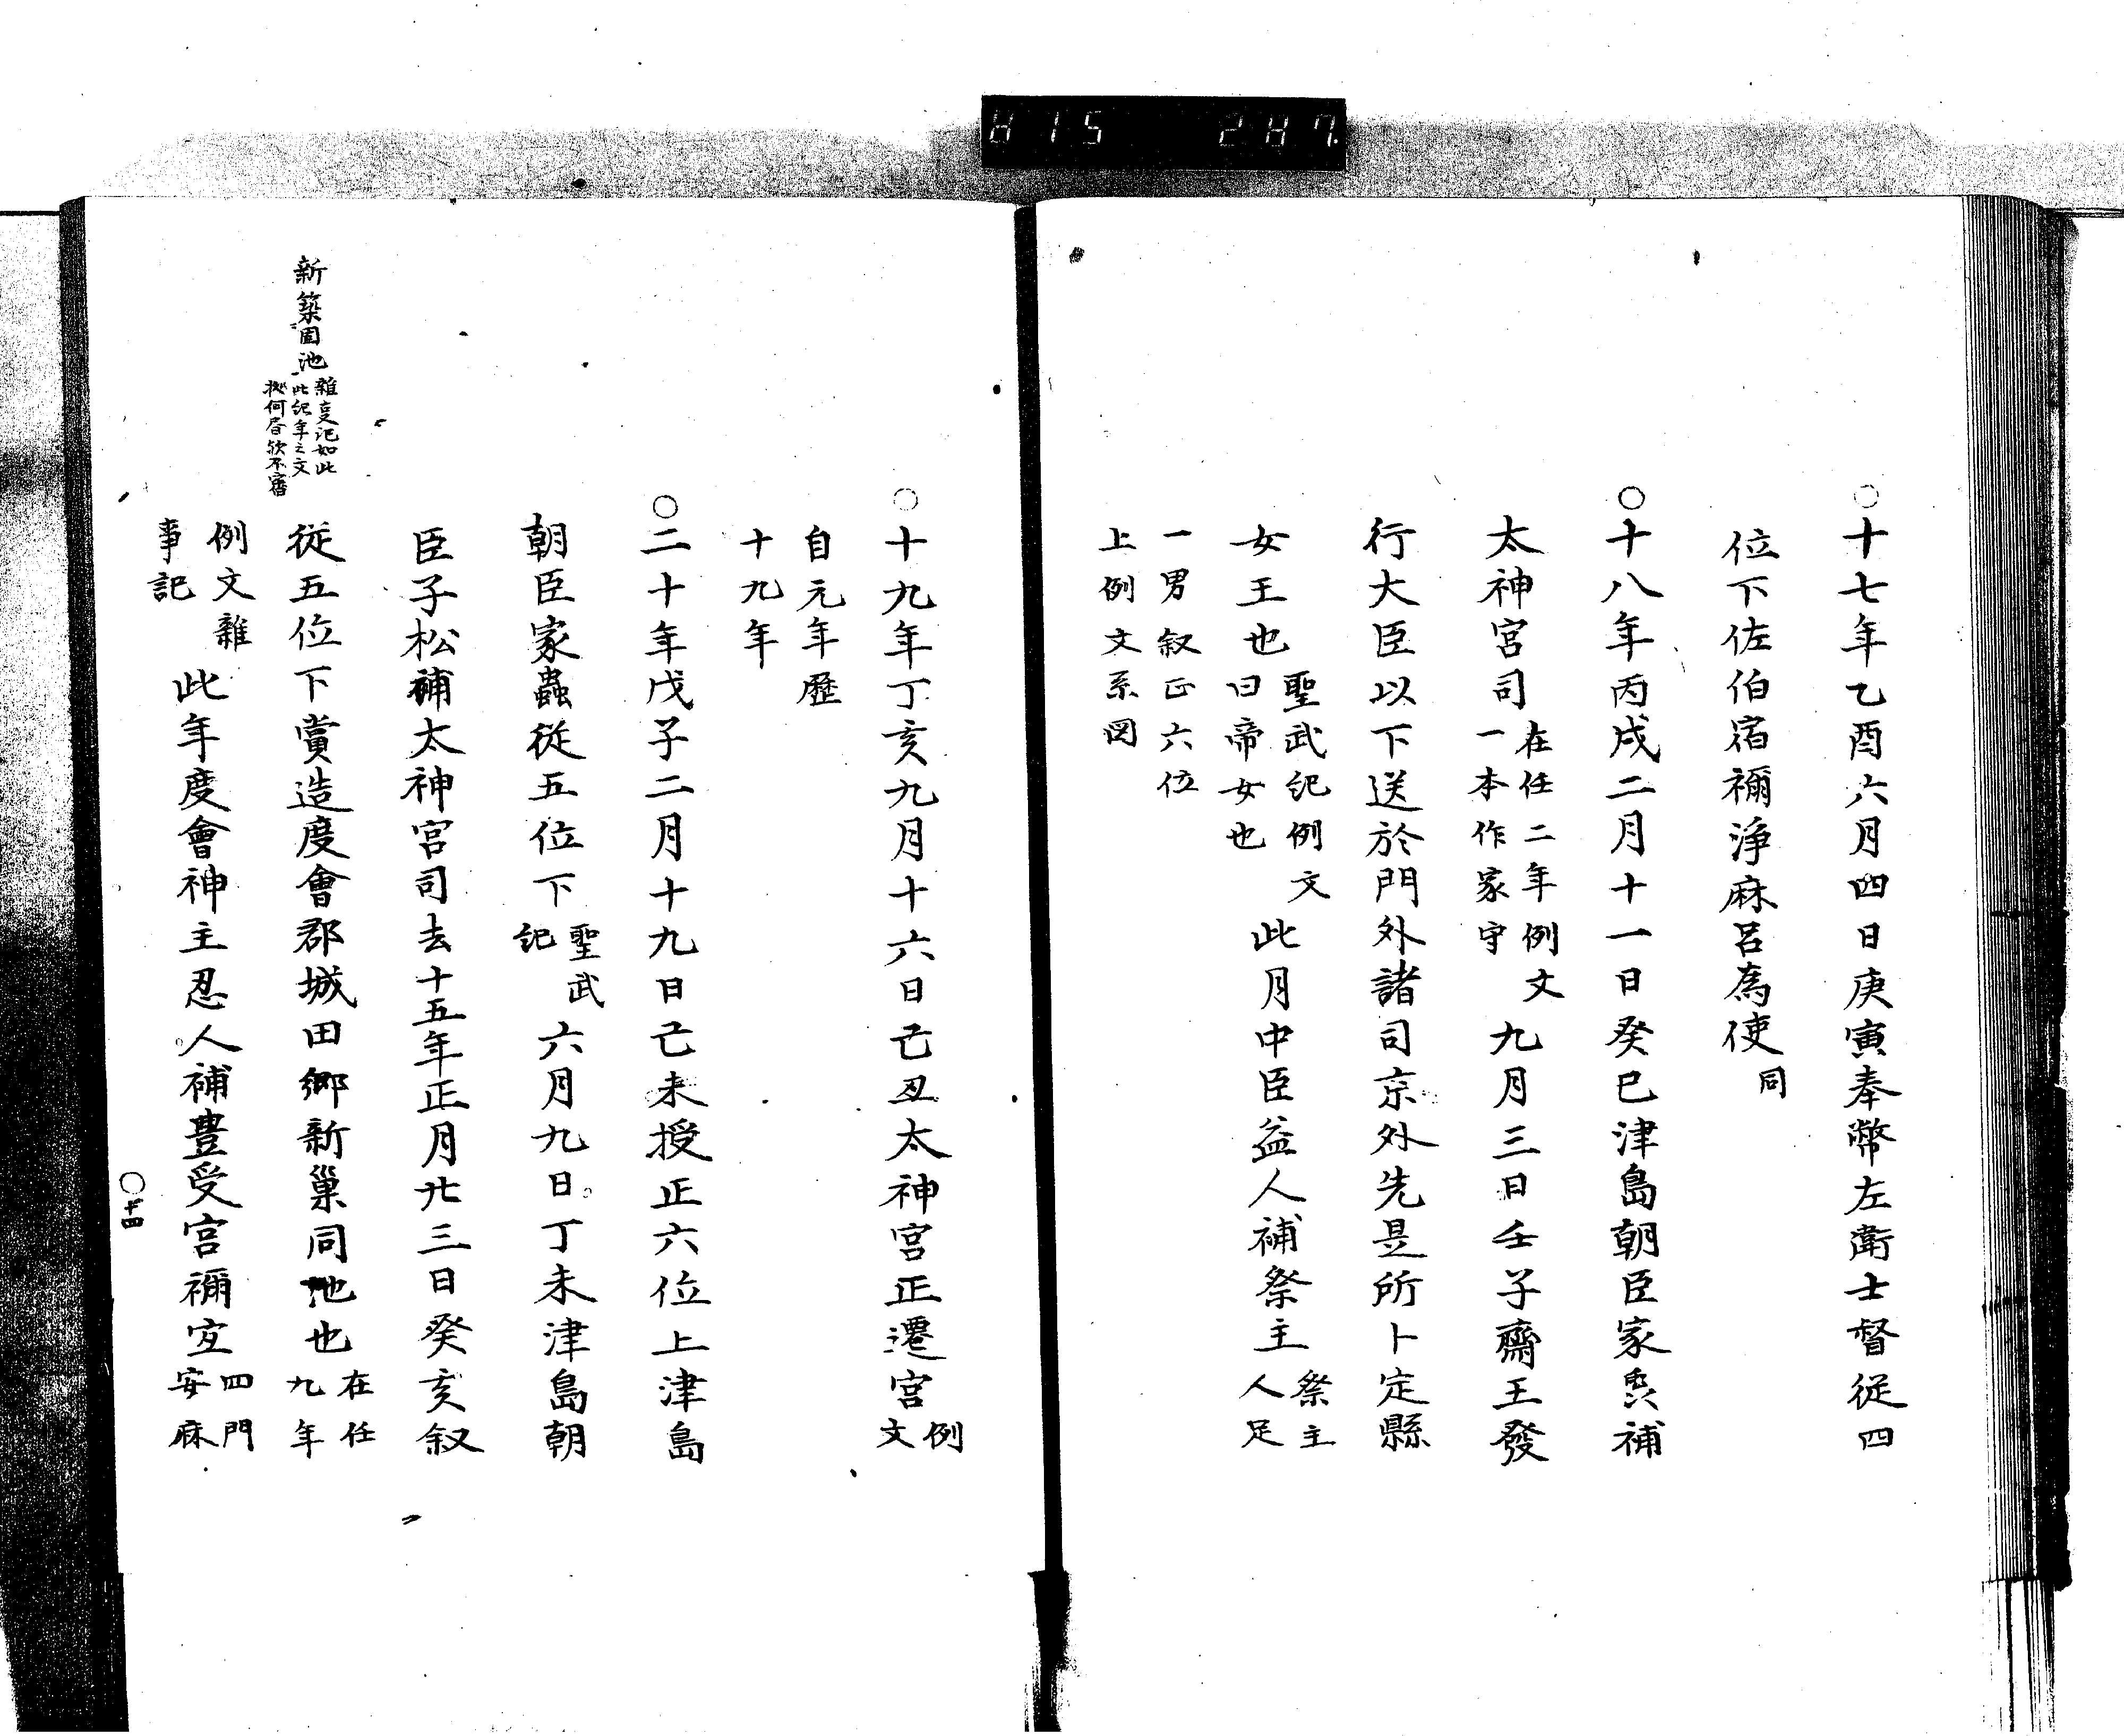 ○十七年乙酉六月四日庚寅奉幣左衛士督従四
位下佐伯宿禰浄麻呂為使同
○十八年丙戌二月十一日癸巳津島朝臣家虫補
太神宮司在任二年例文
一本作家守九月三日壬子齋王發
行大臣以下送於門外諸司京外先是所卜定縣
女王也聖武紀例文
曰帝女也此月中臣益人補祭主祭主
人足
一男叙正六位
上例文系図
○十九年丁亥九月十六日己丑太神宮正遷宮例
文
自元年歴
十九年
○二十年戊子二月十九日己未授正六位上津島
朝臣家蟲従五位下聖武
紀六月九日丁未津島朝
臣子松補太神宮司去十五年正月廿三日癸亥叙
従五位下賞造度會郡城田郷新巢同池也在任
九年
例文雜
事記此年度會神主忍人補豊受宮禰宜四門
安麻
新築固池雜事記如此
此紀年之文
拠何書歟不審
○十四
H15 2H7.